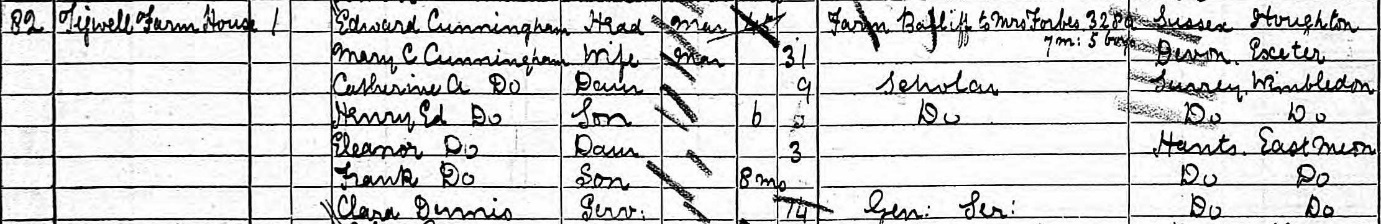 82 Tigwell Farm House 1 Edward Cunningham Head Mar Farm Bailiff to Mrs Forbes. 328a Sussex Houghton
7 m: 5 boys
Mary C Cunningham Wife Mar 31 Devon. Exeter
Catherine A Do Daur 9 Scholar Surrey. Wimbledon
Henry Ed Do Son 6 Do Do Do
Eleanor Do Daur 3 Hants. East Meon
Frank Do Son 8 mo Do Do
Clara Dennis Serv: 14 Gen: Ser: Do Do